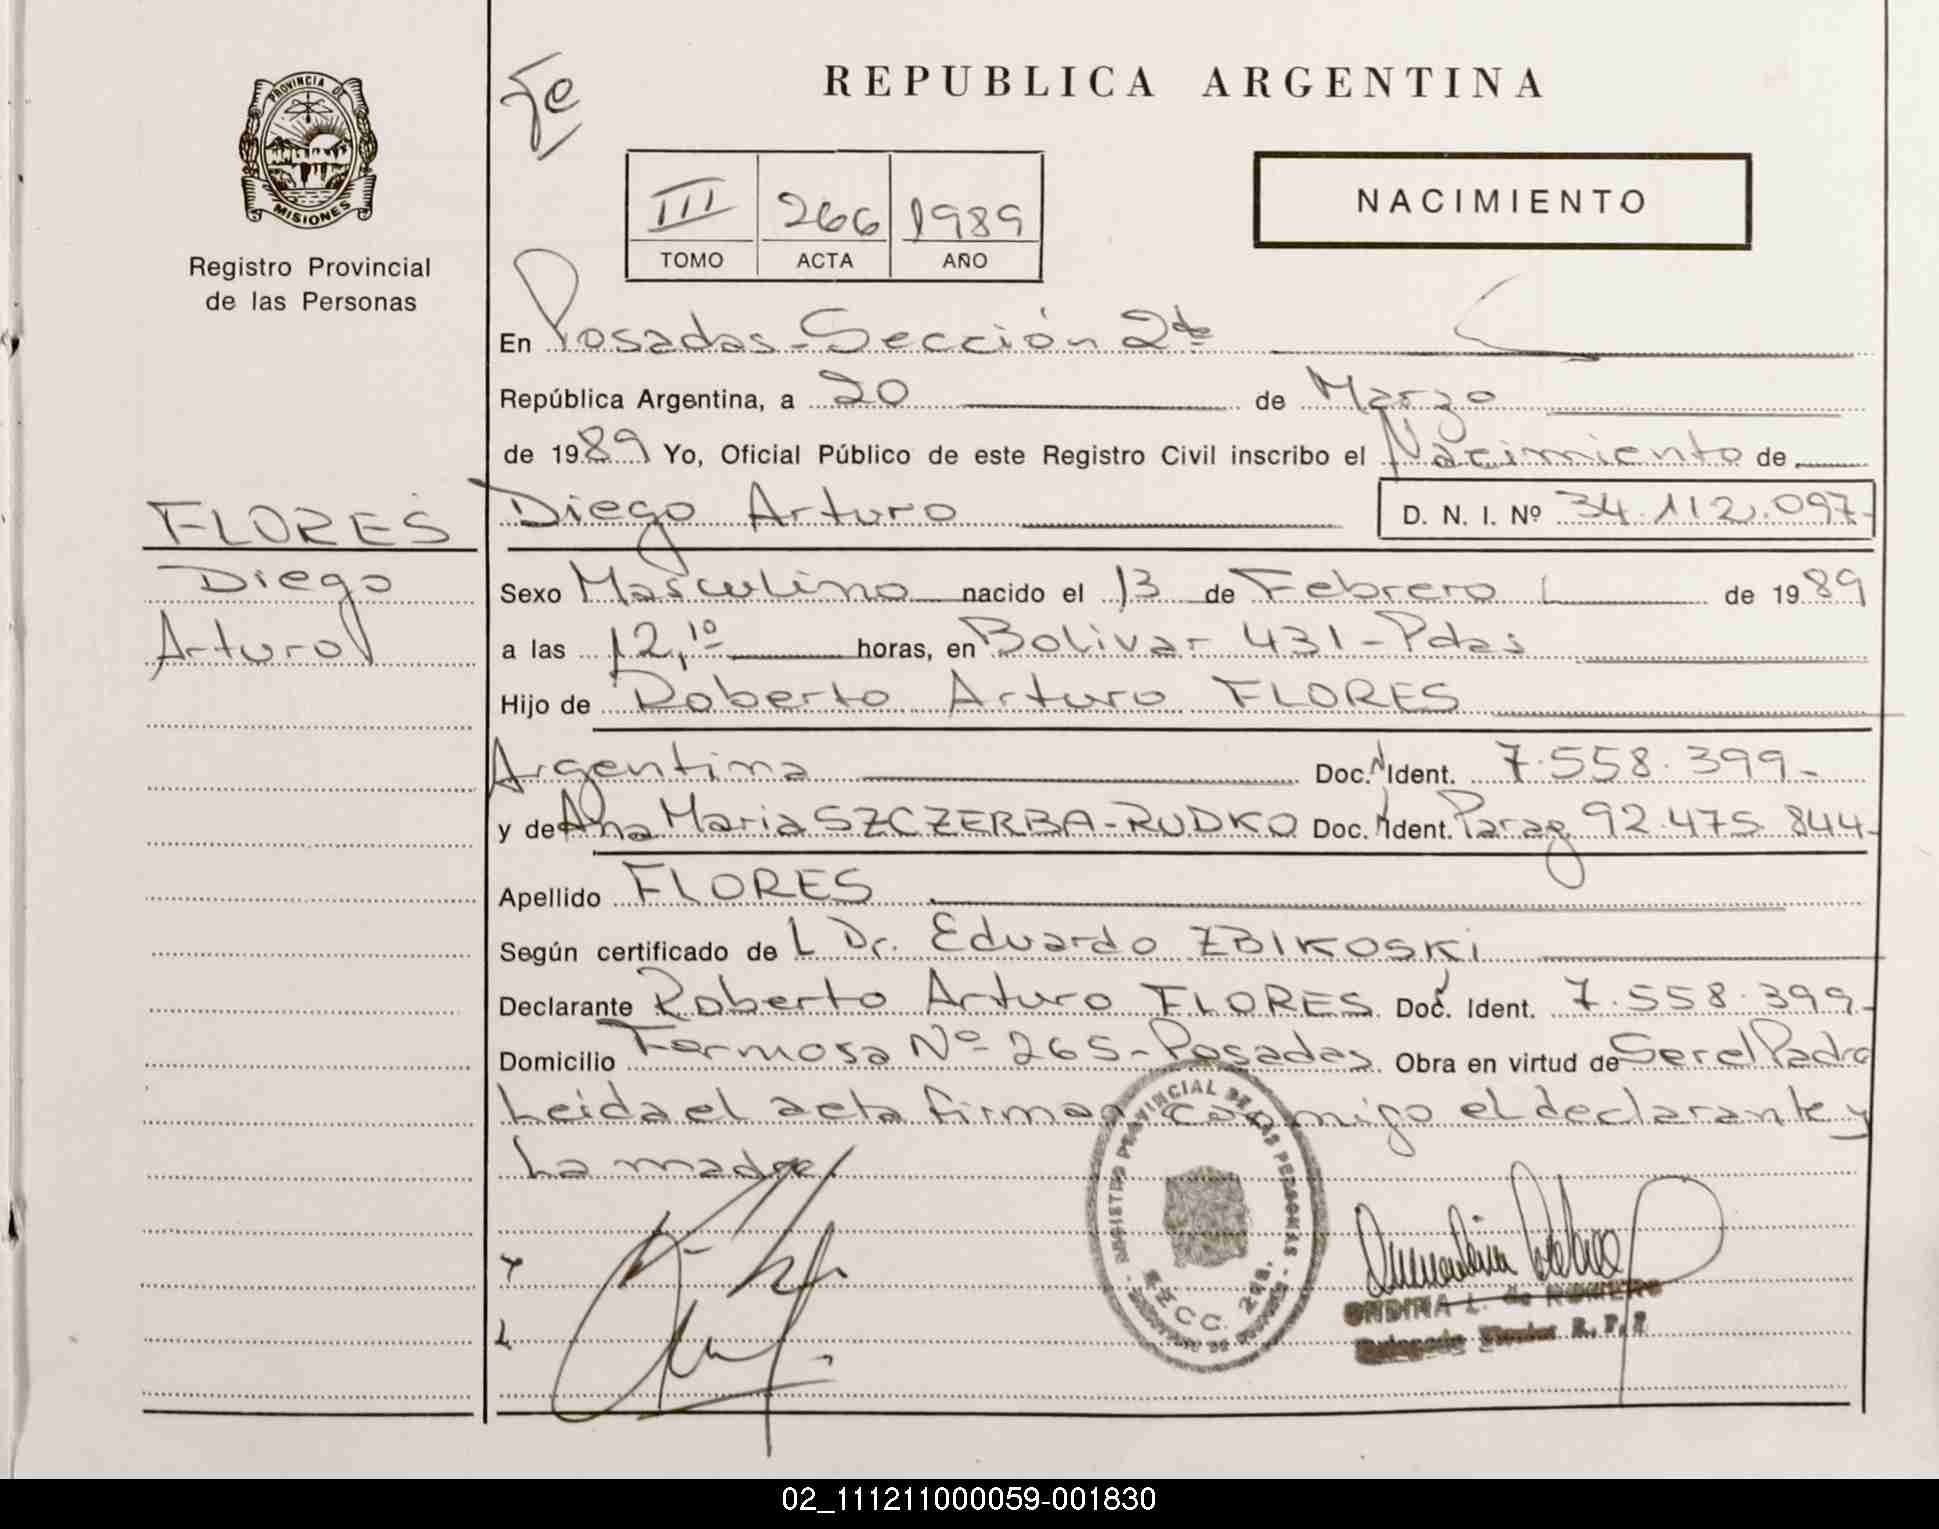 PROVINCIA DE
MISIONES
Registro Provincial
de las Personas
REPUBLICA ARGENTINA
III 266 1989
TOMO ACTA AÑO
NACIMIENTO
En Posadas - Sección 2da
República Argentina, a 20 de Marzo
de 1989 Yo, Oficial Público de este Registro Civil inscribo el Nacimiento de
FLORES
Diego
Arturo
Diego Arturo D. N. I. Nº 34.112.097-
Sexo Masculino nacido el 13 de Febrero de 1989
a las 12,10 horas, en Bolivar 431 - Pdas
Hijo de Roberto Arturo FLORES
Argentina Doc. Ident. 7.558.399-
y de Ana Maria SZCZERBA-RUDKO Doc. Ident. Parag 92.475.844-
Apellido FLORES
Según certificado de L Dr. Eduardo ZBIKOSKi
Declarante Roberto Arturo FLORES Doc. Ident. 7.558.399-
Domicilio Formosa Nº 265 - Posadas Obra en virtud de Ser el Padre
Leida el acta firman conmigo el declarante y
La madre
REGISTRO PROVINCIAL DE LAS PERSONAS
ONDINA L. de ROMERO
02_111211000059-001830